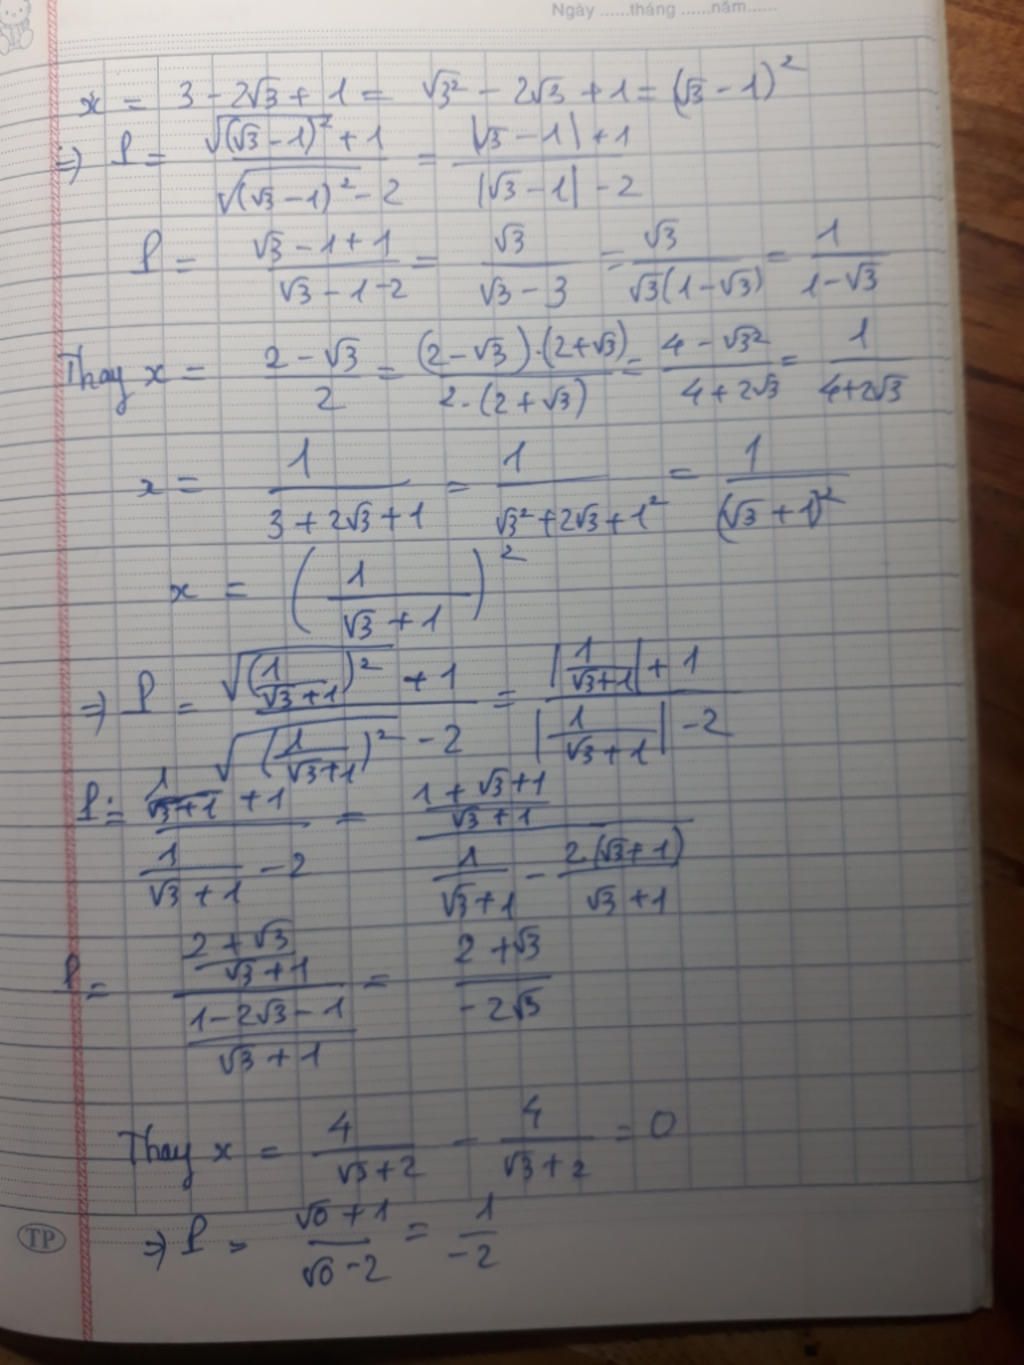 Ngày ......tháng ......năm......
x = 3 - 2√3 + 1 = √3² - 2√3 + 1 = (√3 - 1)²
=> P = (√(√3 - 1)² + 1)/(√(√3 - 1)² - 2) = (|√3 - 1| + 1)/(|√3 - 1| - 2)
P = (√3 - 1 + 1)/(√3 - 1 - 2) = √3/(√3 - 3) = √3/(√3(1 - √3)) = 1/(1 - √3)
Thay x = (2 - √3)/2 = ((2 - √3).(2 + √3))/(2.(2 + √3)) = (4 - √3²)/(4 + 2√3) = 1/(4 + 2√3)
x = 1/(3 + 2√3 + 1) = 1/(√3² + 2√3 + 1²) = 1/(√3 + 1)²
x = (1/(√3 + 1))²
=> P = (√(1/(√3 + 1))² + 1)/(√(1/(√3 + 1))² - 2) = (|1/(√3 + 1)| + 1)/(|1/(√3 + 1)| - 2)
P = (1/(√3 + 1) + 1)/(1/(√3 + 1) - 2) = ((1 + √3 + 1)/(√3 + 1))/(1/(√3 + 1) - 2(√3 + 1)/(√3 + 1))
P = ((2 + √3)/(√3 + 1))/((1 - 2√3 - 1)/(√3 + 1)) = (2 + √3)/(-2√3)
Thay x = 4/(√3 + 2) - 4/(√3 + 2) = 0
=> P = (√0 + 1)/(√0 - 2) = 1/-2
TP